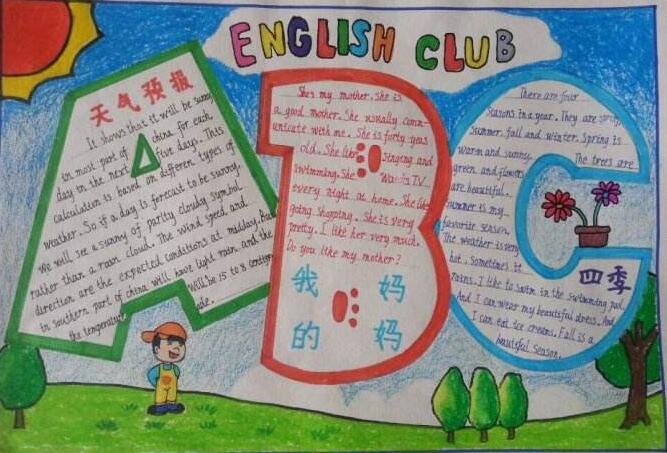 ENGLISH CLUB
天气预报
It shows that it will be sunny
in most part of china for each
day in the next five days. This
calculation is based on different types of
weather. So if a day is forecast to be sunny
we will see a sunny of partly cloudy symbol
rather than a rain cloud. The wind speed and
direction are the expected conditions at midday. But
in southern part of china will have light rain and the
the temperature will be 15 to 8 centigr
ade.
She's my mother. She is
a good mother. She usually comm-
unicate with me. She is forty yeas
old. She likes singing and
swimming. She Watch TV
every night at home. She likes
going shopping. She is very
pretty. I like her very much.
Do you like my mother?
我 妈
的 妈
There are four
seasons in a year. They are spring,
summer, fall and winter. Spring is
warm and sunny. The trees are
green and flowers
are beautiful.
summer is my
favorite season.
The weather is very
hot. Sometimes it
rains. I like to swim in the swimming pool.
And I can wear my beautiful dress. And
I can eat ice creams. Fall is a
beautiful season.
四季